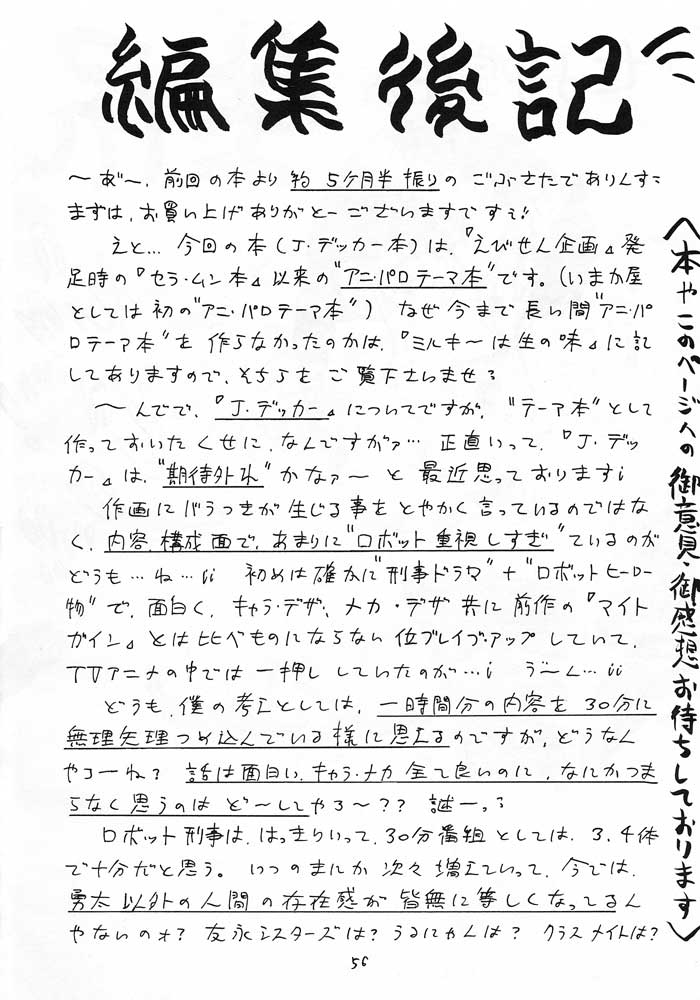 編集後記
〜あ゛〜、前回の本より約5ヶ月半振りのごぶさたでありんす
まずは、お買い上げありがとーございますですぅ
えと… 今回の本(J・デッカー本)は、『えびせん企画』発
足時の『セラ・ムン本』以来の"アニ・パロテーマ本"です。(いまか屋
としては初の"アニ・パロテーマ本") なぜ今まで長い間"アニ・パ
ロテーマ本"を作らなかったのかは、『ミルキ〜は生の味』に記
してありますので、そちらをご覧下さいませ
〜んでで、『J・デッカー』についてですが、"テーマ本"として
作っておいたくせに、なんですがァ… 正直いって、『J・デッ
カー』は、"期待外れ"かなァ〜と最近思っております
作画にバラつきが生じる事をとやかく言っているのではな
く、内容、構成面で、あまりに"ロボット重視しすぎ"ているのが
どうも…ね…ii 初めは確かに"刑事ドラマ"+"ロボットヒーロー
物"で、面白く、キャラ・デザ、メカ・デザ共に前作の『マイト
ガイン』とは比べものにならない位ブレイブ・アップしていて、
TVアニメの中では一押ししていたのが…i う゛〜ん…ii
どうも、僕の考えとしては、一時間分の内容を30分に
無理矢理つめ込んでいる様に思えるのですが、どうなん
やろーね? 話は面白い、キャラ・メカ全て良いのに、なにかつま
らなく思うのはど〜してやろ〜?? 謎ーっ
ロボット刑事は、はっきりいって、30分番組としては、3、4体
で十分だと思う。いつのまにか次々増えていって、今では、
勇太以外の人間の存在感が皆無に等しくなってるん
やないのォ? 友永シスターズは? うるにゃんは? クラスメイトは?
56
〈本やこのページへの御意見・御感想お待ちしております〉